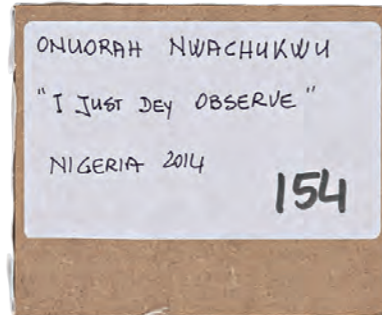 ONUORAH NWACHUKWU
"I JUST DEY OBSERVE"
NIGERIA 2014
154